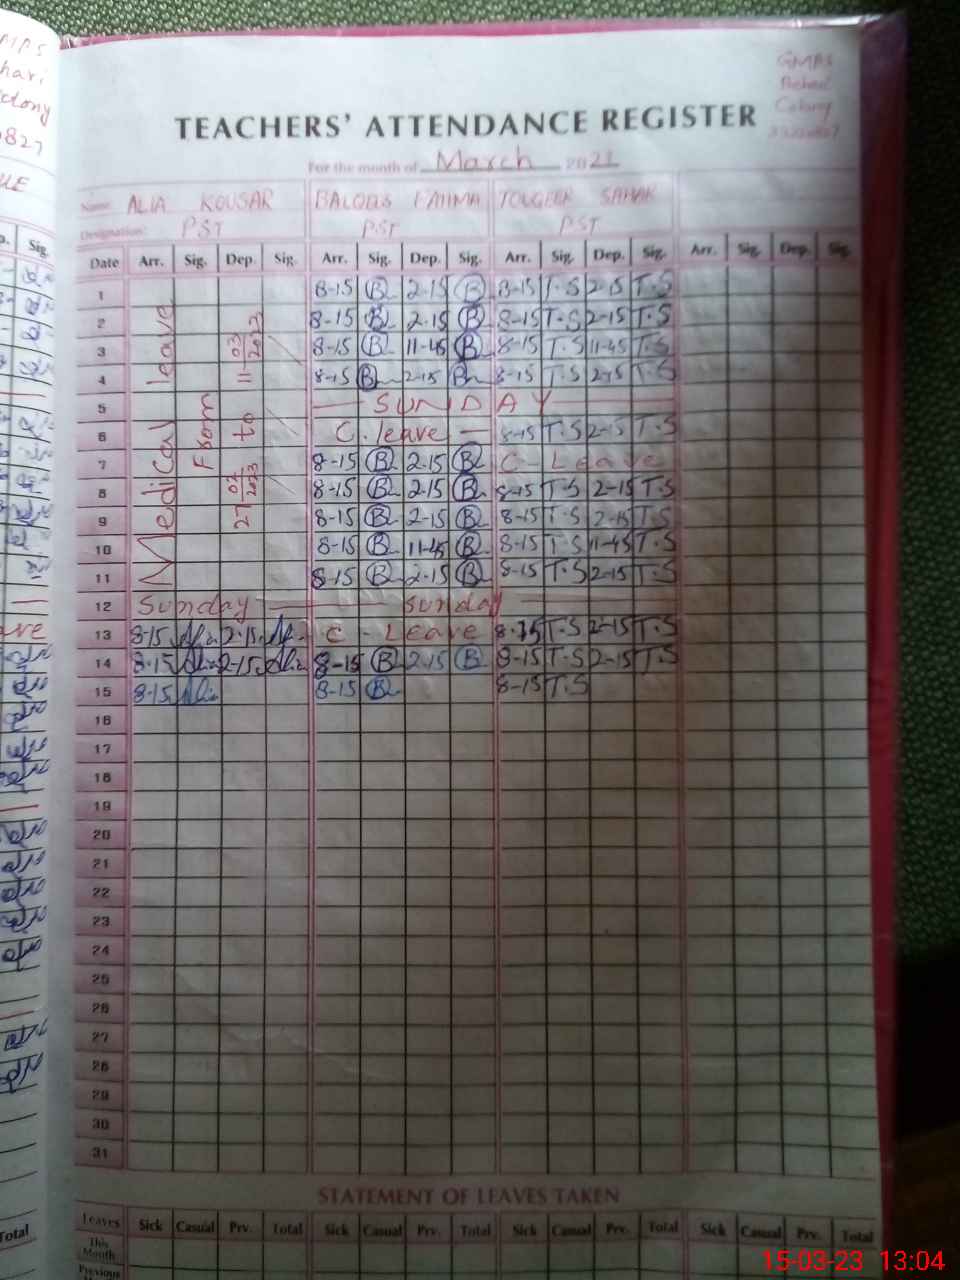 GMPS
Colony
TEACHERS' ATTENDANCE REGISTER
For the month of March 20
Name: ALIA KOUSAR BALQBS FATIMA TOUQEER SAHAR
Designation: PST PST PST
Date Arr. Sig. Dep. Sig. Arr. Sig. Dep. Sig. Arr. Sig. Dep. Sig. Arr. Sig. Dep. Sig.
Medical leave
From
27 02 2023 to 11-03 2023
1 8-15 B 2-15 B 8-15 T.S 2-15 T.S
2 8-15 B 2-15 B 8-15 T.S 2-15 T.S
3 8-15 B 11-45 B 8-15 T.S 11-45 T.S
4 8-15 B 2-15 B 8-15 T.S 2-15 T.S
5 SUNDAY
6 C. leave 8-15 T.S 2-15 T.S
7 8-15 B 2-15 B C - Leave
8 8-15 B 2-15 B 8-15 T.S 2-15 T.S
9 8-15 B 2-15 B 8-15 T.S 2-15 T.S
10 8-15 B 11-45 B 8-15 T.S 11-45 T.S
11 8-15 B 2-15 B 8-15 T.S 2-15 T.S
12 Sunday sunday
13 8-15 Alia 2-15 Alia C - Leave 8-15 T.S 2-15 T.S
14 8-15 Alia 2-15 Alia 8-15 B 2-15 B 8-15 T.S 2-15 T.S
15 8-15 Alia 8-15 B 8-15 T.S
16
17
18
19
20
21
22
23
24
25
26
27
28
29
30
31
STATEMENT OF LEAVES TAKEN
Leaves Sick Casual Prv. Total Sick Casual Prv. Total Sick Casual Prv. Total Sick Casual Prv. Total
This Month
Previous
15-03-23 13:04